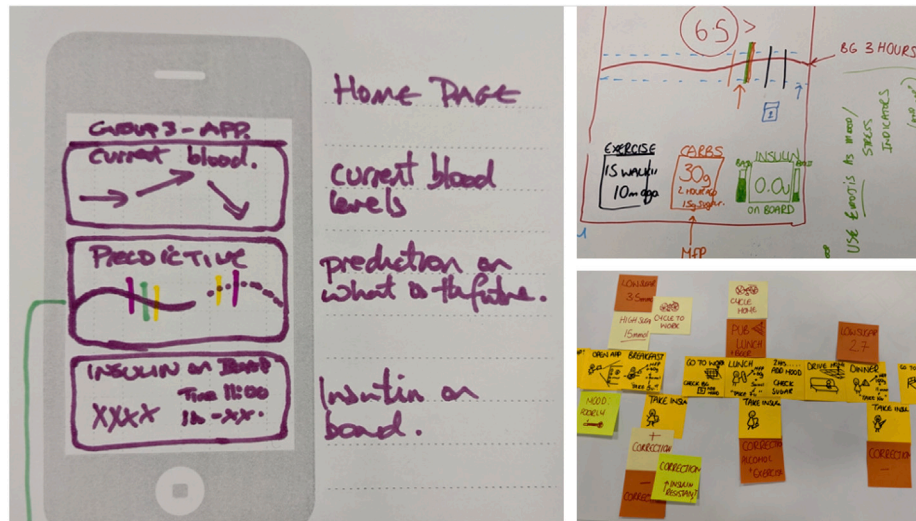 GROUP 3 - APP.
Current blood.
PREDICTIVE
INSULIN on BOARD
Time 11:00
XXXX
1h -xx.
HOME PAGE
current blood
levels
prediction on
what is the future.
Insulin on
board.
6.5 >
BG 3 HOURS
EXERCISE
15 WALK
10m ago
CARBS
30g
2 HOUR AGO
15g Sugar
MFP
INSULIN
0.0u
ON BOARD
USE EMOJIS AS MOOD/
STRESS
INDICATORS
LOW SUGAR
3.5mm
HIGH SUG
15mmol
CYCLE TO
WORK
CYCLE
HOME
PUB
LUNCH
+ BEER
LOW SUGAR
2.7
OPEN APP
BREAKFAST
GO TO WORK
CHECK BG
LUNCH
2HRS....
ADD MOOD
CHECK
SUGAR
DRIVE HOME
DINNER
GO TO
MOOD:
POORLY
TAKE INSU
TAKE INSU
TAKE INSU
+
CORRECTION
-
CORRECTION
↑ INSULIN
RESISTANT
CORRECTO
ALCOHOL
+ EXERCISE
CORRECTION
-